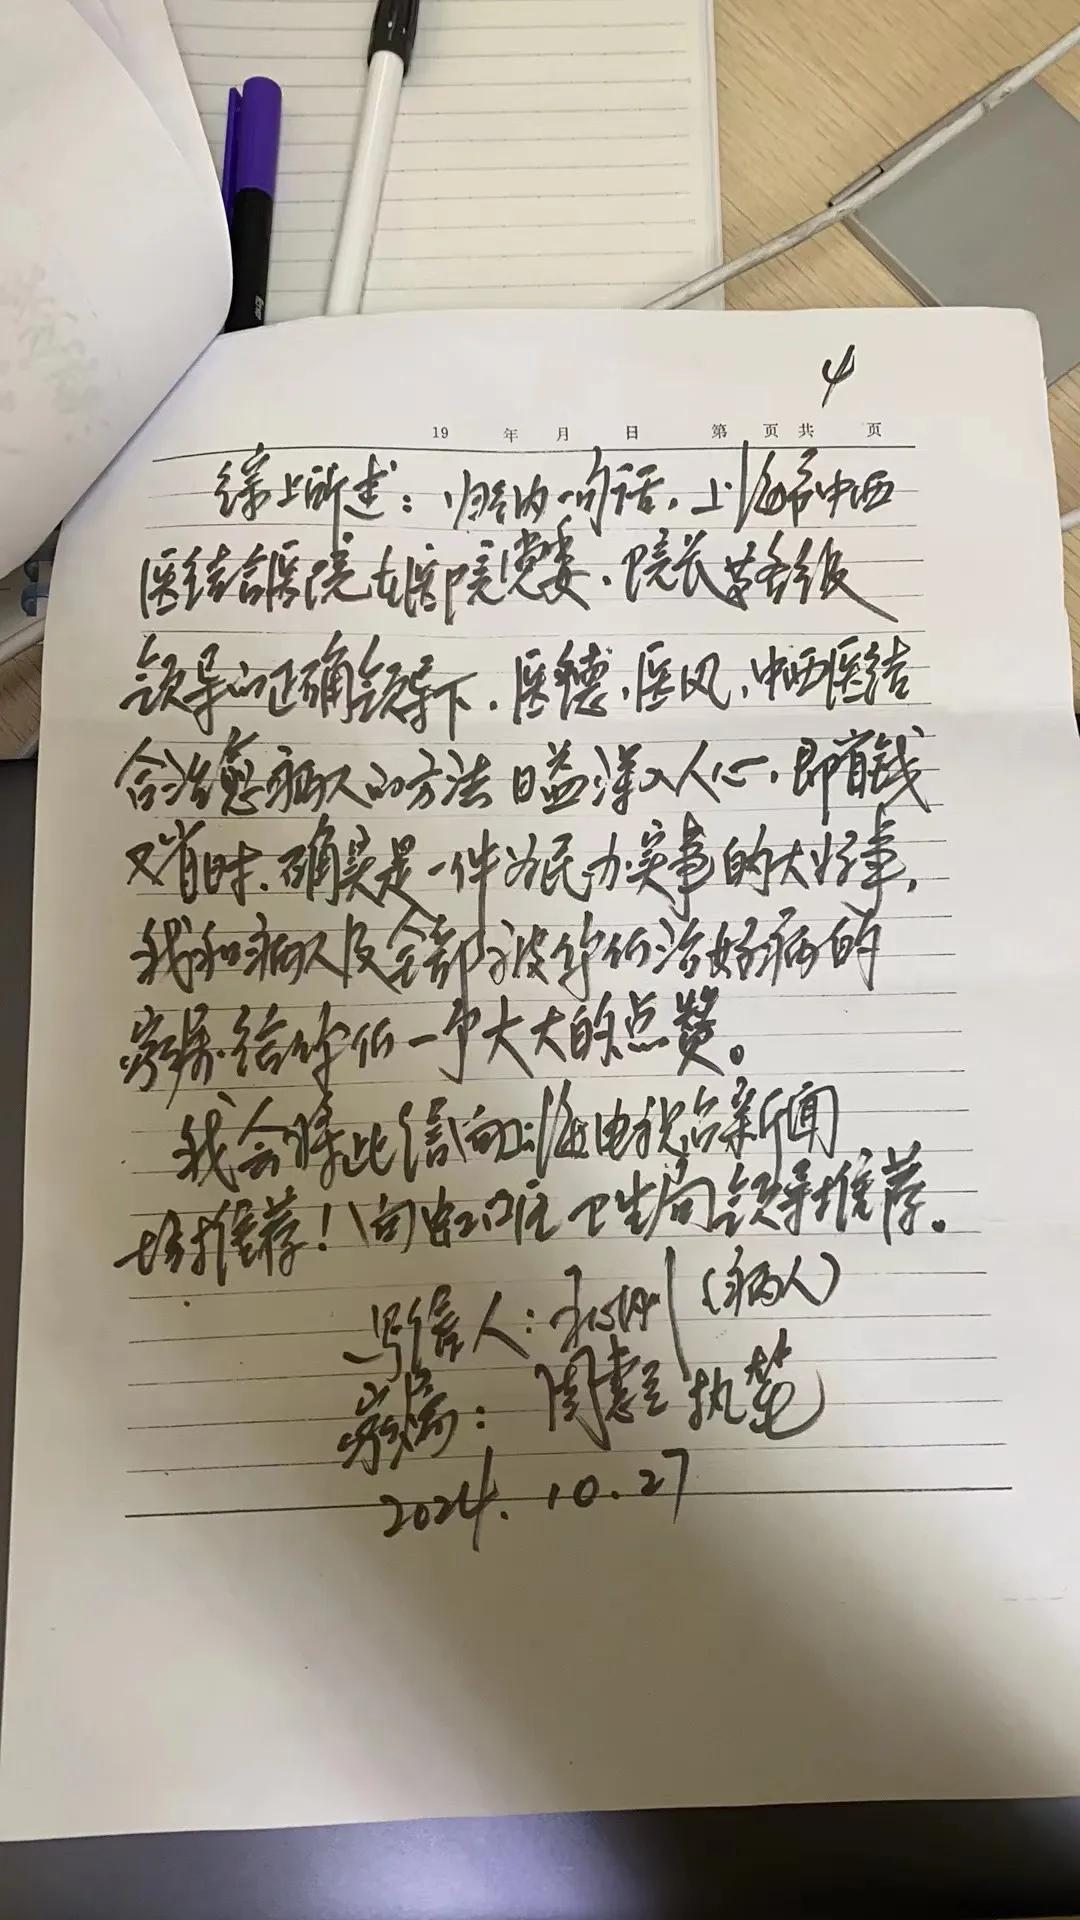 4
19 年 月 日 第 页 共 页
综上所述：归纳一句话，上海市中西
医结合医院在医院党委、院长等各级
领导的正确领导下，医德、医风、中西医结
合治愈病人的方法日益深入人心，即省钱
又省时，确实是一件为民办实事的大好事，
我和病人及全部被你们治好病的
家属给你们一个大大的点赞。
我会将此信向上海电视台新闻
推荐！向虹口区卫生局领导推荐。
写信人：（病人）
家属：周惠 执笔
2024.10.27